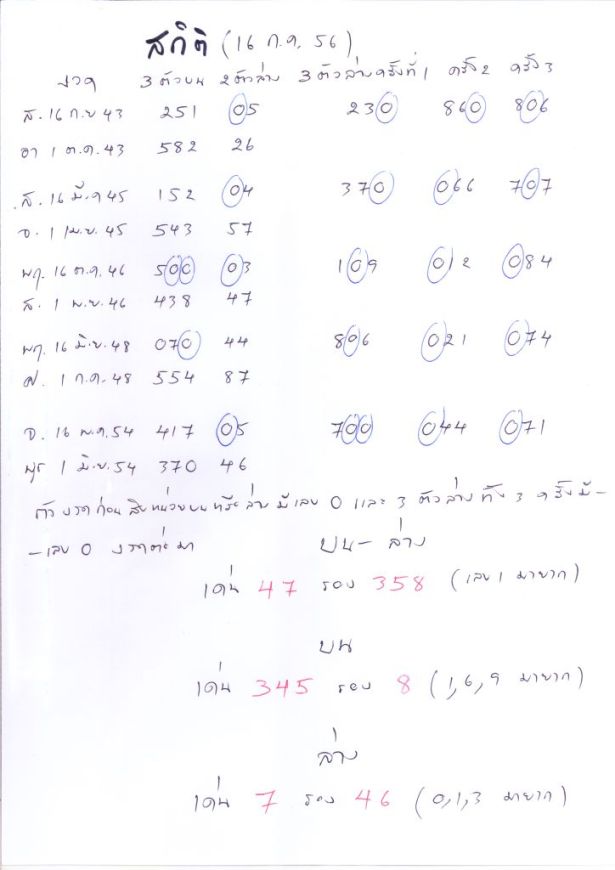 สถิติ (16 ก.ค. 56)
งวด 3 ตัวบน 2 ตัวล่าง 3 ตัวล่างครั้งที่ 1 ครั้ง 2 ครั้ง 3
ส. 16 ก.ย 43 251 05 230 860 806
อา 1 ต.ค. 43 582 26
ส. 16 มี.ค 45 152 04 370 066 707
จ. 1 เม.ย. 45 543 57
พฤ. 16 ต.ค. 46 500 03 109 012 084
ส. 1 พ.ย. 46 438 47
พฤ. 16 มิ.ย. 48 070 44 806 021 074
ศ. 1 ก.ค. 48 554 87
จ. 16 พ.ค. 54 417 05 700 044 071
พุธ 1 มิ.ย. 54 370 46
ถ้างวดก่อน สิบหน่วยบนหรือล่าง มีเลข 0 และ 3 ตัวล่าง ทั้ง 3 ครั้งมี -
- เลข 0 งวดต่อมา บน - ล่าง
เด่น 47 รอง 358 (เลข 1 มายาก)
บน
เด่น 345 รอง 8 (1,6,9 มายาก)
ล่าง
เด่น 7 รอง 46 (0,1,3 มายาก)